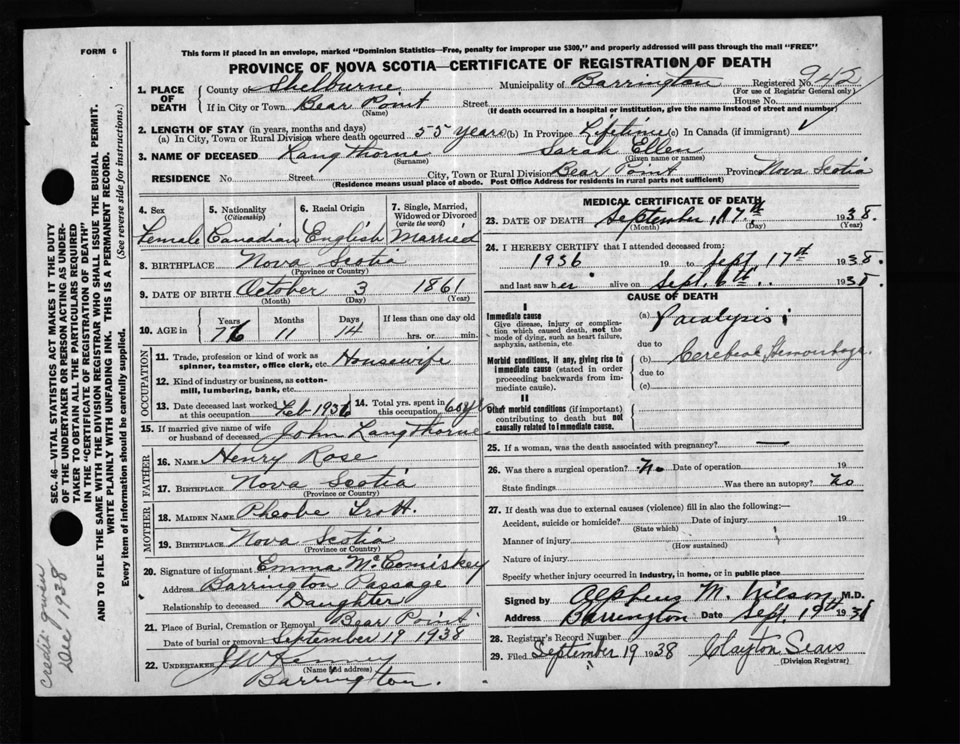 FORM 6
This form if placed in an envelope, marked "Dominion Statistics—Free, penalty for improper use $300," and properly addressed will pass through the mail "FREE"
PROVINCE OF NOVA SCOTIA—CERTIFICATE OF REGISTRATION OF DEATH
1. PLACE OF DEATH County of Shelburne Municipality of Barrington Registered No. 942
(For use of Registrar General only)
If in City or Town Bear Point Street House No.
(Name) (If death occurred in a hospital or institution, give the name instead of street and number)
2. LENGTH OF STAY (in years, months and days)
(a) In City, Town or Rural Division where death occurred 55 years (b) In Province Lifetime (c) In Canada (if immigrant)
3. NAME OF DECEASED Langthorne Sarah Ellen
(Surname) (Given name or names)
RESIDENCE No. Street City, Town or Rural Division Bear Point Province Nova Scotia
(Residence means usual place of abode. Post Office Address for residents in rural parts not sufficient)
4. Sex 5. Nationality (Citizenship) 6. Racial Origin 7. Single, Married, Widowed or Divorced (write the word)
Female Canadian English Married
8. BIRTHPLACE Nova Scotia
(Province or Country)
9. DATE OF BIRTH October 3 1861
(Month) (Day) (Year)
10. AGE in Years Months Days If less than one day old
76 11 14 hrs. or min.
OCCUPATION
11. Trade, profession or kind of work as spinner, teamster, office clerk, etc. Housewife
12. Kind of industry or business, as cotton-mill, lumbering, bank, etc.
13. Date deceased last worked at this occupation Feb 1936 14. Total yrs. spent in this occupation 60 yrs
15. If married give name of wife or husband of deceased John Langthorne
FATHER
16. NAME Henry Rose
17. BIRTHPLACE Nova Scotia
(Province or Country)
MOTHER
18. MAIDEN NAME Pheobe Trott
19. BIRTHPLACE Nova Scotia
(Province or Country)
20. Signature of informant Emma McComiskey
Address Barrington Passage
Relationship to deceased Daughter
21. Place of Burial, Cremation or Removal Bear Point
Date of burial or removal September 19 1938
22. UNDERTAKER J W Kenney
(Name and address)
Barrington.
MEDICAL CERTIFICATE OF DEATH
23. DATE OF DEATH September, 17th 1938.
(Month) (Day) (Year)
24. I HEREBY CERTIFY that I attended deceased from:
1936 19 to Sept. 17th 1938.
and last saw her alive on Sept. 6th 1938.
CAUSE OF DEATH
I
Immediate cause (a) Paralysis
Give disease, injury or complication which caused death, not the mode of dying, such as heart failure, asphyxia, asthenia, etc
due to
Morbid conditions, if any, giving rise to immediate cause (stated in order proceeding backwards from immediate cause).
(b) Cerebral Hemorrhage.
due to
(c)
II
Other morbid conditions (if important) contributing to death but not causally related to immediate cause.
25. If a woman, was the death associated with pregnancy? —
26. Was there a surgical operation? no Date of operation 19
State findings Was there an autopsy? no
27. If death was due to external causes (violence) fill in also the following:—
Accident, suicide or homicide? Date of injury 19
(State which)
Manner of injury
(How sustained)
Nature of injury
Specify whether injury occurred in industry, in home, or in public place
Signed by Alpheus M. Wilson M.D.
Address Barrington Date Sept. 19th 1938
28. Registrar's Record Number
29. Filed September 19 1938 Clayton Sears
(Division Registrar)
SEC. 46—VITAL STATISTICS ACT MAKES IT THE DUTY
OF THE UNDERTAKER OR PERSON ACTING AS UNDER-
TAKER TO OBTAIN ALL THE PARTICULARS REQUIRED
IN THE "CERTIFICATE OF REGISTRATION OF DEATH"
AND TO FILE THE SAME WITH THE DIVISION REGISTRAR WHO SHALL ISSUE THE BURIAL PERMIT.
WRITE PLAINLY WITH UNFADING INK. THIS IS A PERMANENT RECORD.
Every item of information should be carefully supplied. (See reverse side for instructions.)
Credit given
Dec 1938